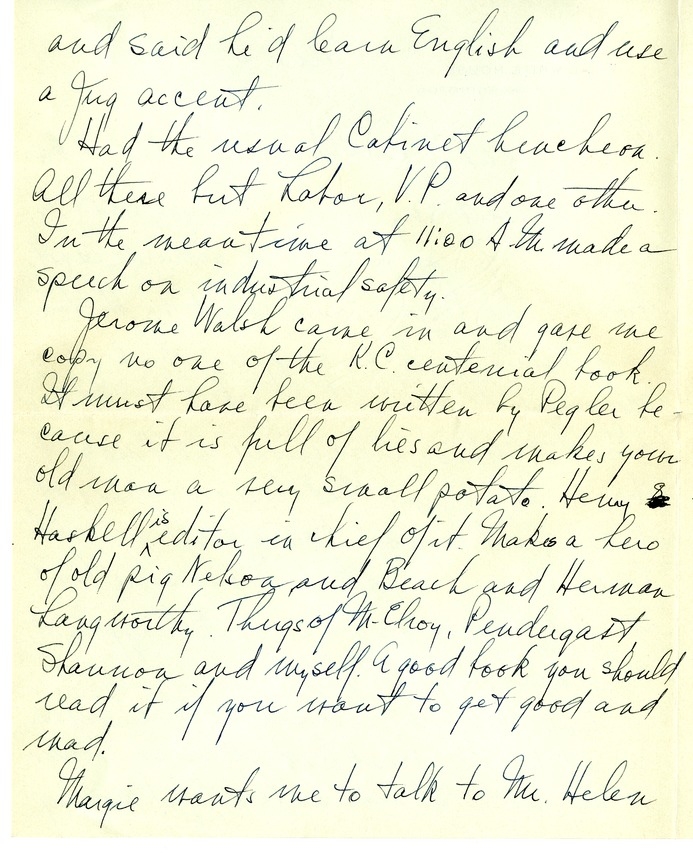 and said he'd learn English and use
a Jug accent.
Had the usual Cabinet luncheon.
All there but Labor, V.P. and one other.
In the meantime at 11:00 A.M. made a
speech on industrial safety.
Jerome Walsh came in and gave me
copy no one of the K.C. centenial book.
It must have been written by Pegler be-
cause it is full of lies and makes your
old man a very small potato. Henry
Haskell is editor in chief of it. Makes a hero
of old pig Nelson and Beach and Herman
Langworthy. Thugs of McElroy, Pendergast,
Shannon and myself. A good book you should
read it if you want to get good and
mad.
Margie wants me to talk to Mr. Helen